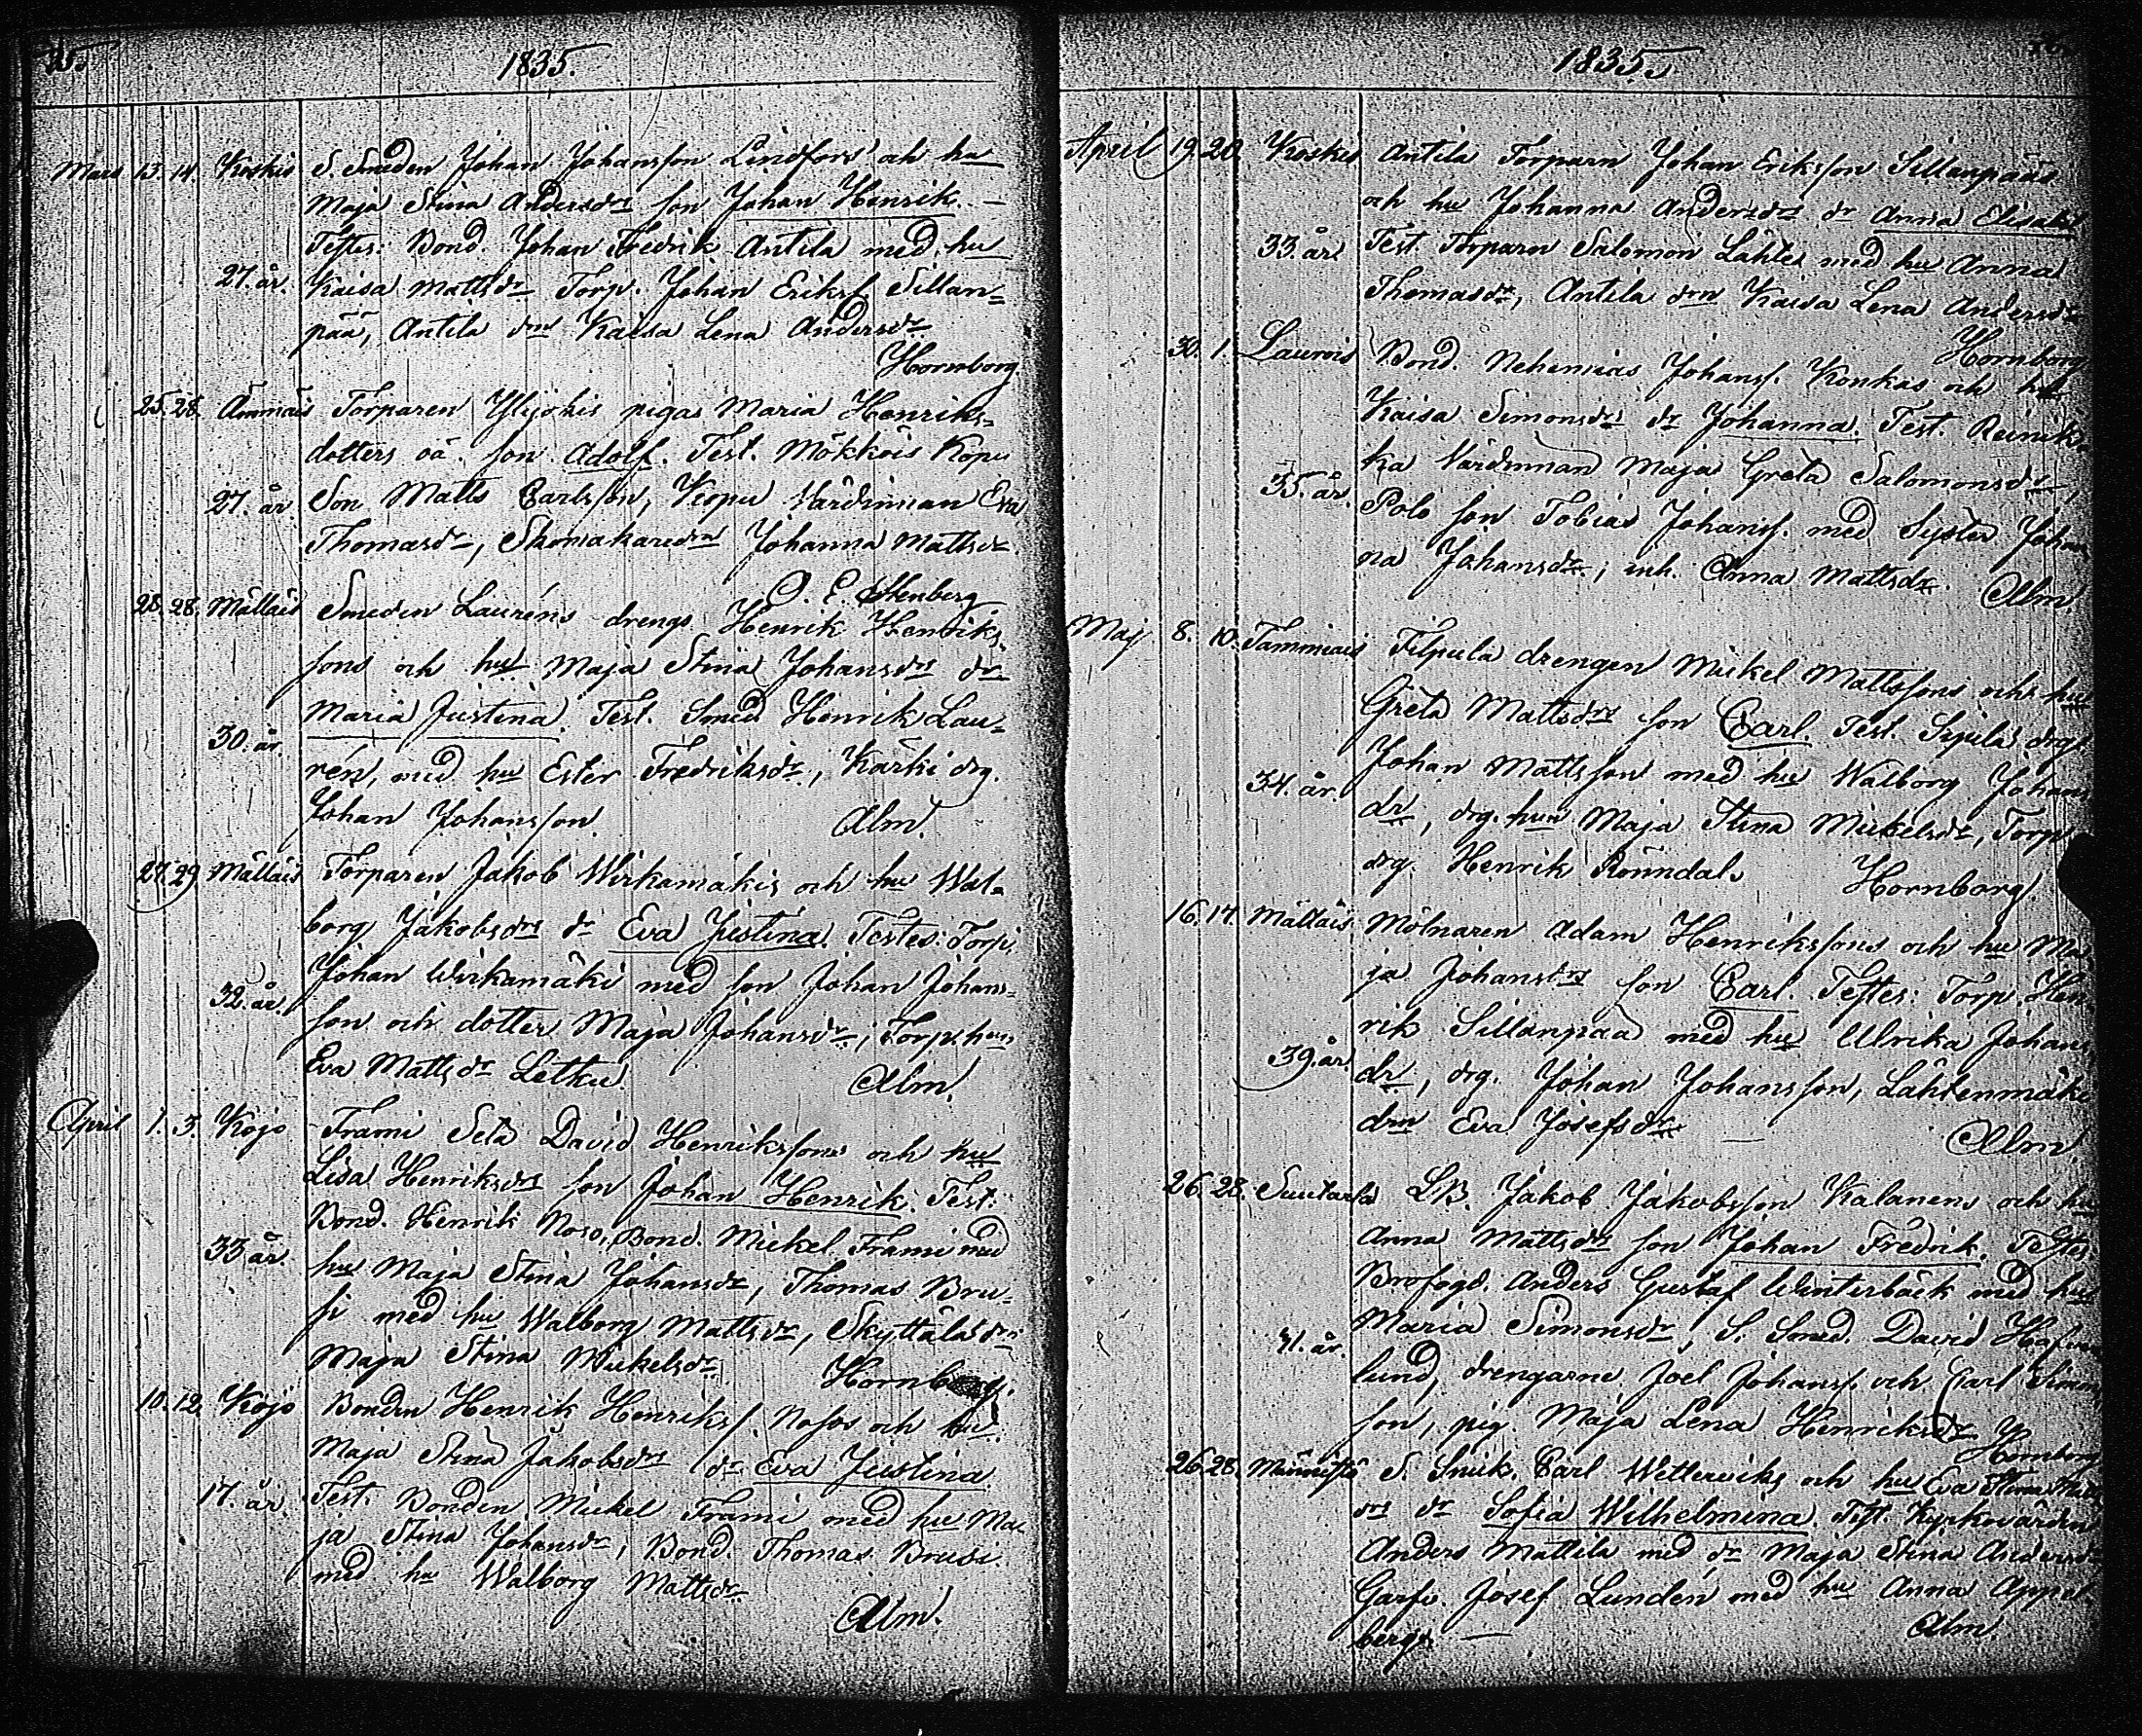 1835.
Mars 13. 14. Koskis S. Smeden Johan Johansson Lindfors och hu
Maja Stina Andersdrs son Johan Henrik. —
Testes: Bond. Johan Fredrik Antila med hu
27. år. Kaisa Mattsdr Torp. Johan Erikss. Sillan=
pää, Antila drn Kaisa Lena Andersdr
Hornborg.
25. 28. Ämmäis Torparen Ylijokis pigas Maria Henriks=
dotters oä. son Adolf. Test. Mökköis Kopu
27. år. Son Matts Carlsson, Kopu Värdinnan Eva
Thomasdr, Skomakaredrn Johanna Mattsdr.
O. E. Stenberg
28. 28. Mällais Smeden Lauréns drengs Henrik Henriks=
sons och hus Maja Stina Johansdrs dr
Maria Justina. Test. Smed Henrik Lau=
30. år. rén, med hu Ester Fredriksdr, Kärki drg.
Johan Johansson. Alm.
27. 29. Mällais Torparen Jakob Wirkamäkis och hu Wal=
borg Jakobsdrs dr Eva Justina. Testes: Torp.
Johan Wirkamäki med son Johan Johans=
32. år. son och dotter Maja Johansdr, Torp.hun
Eva Mattsdr Letku Alm.
April 1. 3. Köjo Frami Seta David Henrikssons och hu
Lisa Henriksdrs son Johan Henrik. Test.
Bond. Henrik Noso, Bond. Mickel Frami med
33 år. hu Maja Stina Johansdr, Thomas Bru=
si med hu Walborg Mattsdr, Skyttälä drn
Maja Stina Mickelsdr. Hornborg.
10. 12. Köjo Bonden Henrik Henrikss. Nosos och hu
Maja Stina Jakobsdrs dr Eva Justina
17. år. Test. Bonden Mickel Frami med hu Ma
ja Stina Johansdr, Bond. Thomas Brusi
med hu Walborg Mattsdr.
Alm.
1835.
April 19. 20. Koskis Antila Torparn Johan Eriksson Sillanpääs
och hu Johanna Andersdrs dr Anna Elisabet
33. år. Test. Torparn Salomon Lähte med hu Anna
Thomasdr, Antila drn Kaisa Lena Andersdr
Hornborg
30. 1. Laurois Bond. Nehemias Johanss. Konkas och hu
Kaisa Simonsdrs dr Johanna. Test. Reinik=
ka Värdinnan Maja Greta Salomonsdr,
35. år. Polo son Tobias Johanss. med Syster Johan
na Johansdr; inh. Anna Mattsdr. Alm.
Maj 8. 10. Tammiais Filpula drengen Mickel Mattssons och hu
Greta Mattsdrs son Carl. Test. Sipilä drg.
Johan Mattsson med hu Walborg Johans
34. år. dr, drg. hun Maja Stina Mickelsdr, Torp.
drg. Henrik Rönndal. Hornborg.
16. 17. Mällais Mölnaren Adam Henrikssons och hu Ma
ja Johansdrs son Carl. Testes: Torp. Hen
rik Sillanpää med hu Ulrika Johans
39. år. dr, drg. Johan Johansson, Lähtenmäki
drn Eva Josefsdr — Alm.
26. 28. Suutarla LB. Jakob Jakobsson Kalanens och hu
Anna Mattsdrs son Johan Fredrik. Testes
Brofogd. Anders Gustaf Winterbäck med hu
Maria Simonsdr, S. Smed. David Hof
41. år. lund, drengarne Joel Johanss. och Carl Simon
son, pig. Maja Lena Henriksdr Hornborg
26. 28. S. Snick. Carl Wetterviks och hu Eva Stina
drs dr Sofia Wilhelmina. Test. Kyrkovärden
Anders Mattila med dr Maja Stina Andersdr
Garfv. Josef Lundén med hu Anna Appel
berg. — Alm.